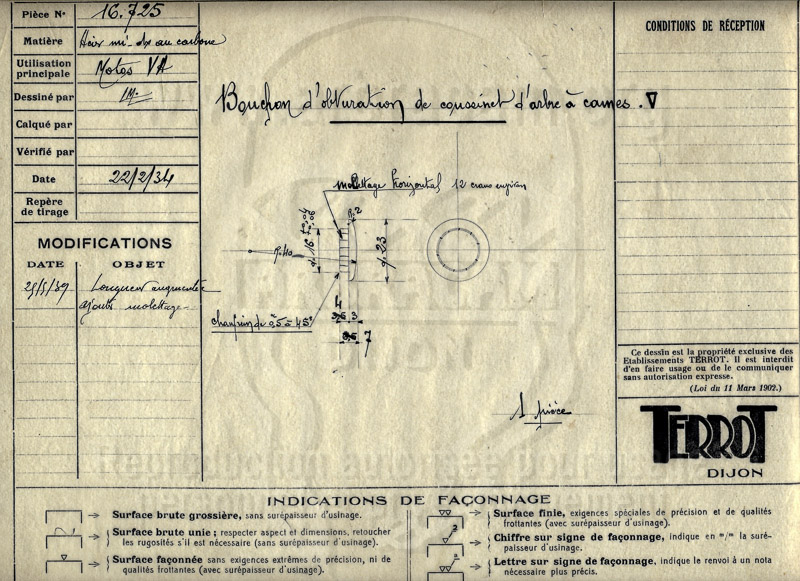 Pièce N° 16.725
Matière Acier mi-dx au carbone
Utilisation principale Motos VA
Dessiné par
Calqué par
Vérifié par
Date 22/2/34
Repère de tirage
MODIFICATIONS
DATE OBJET
Longueur augmentée
ajouté molettage
Bouchon d'obturation de coussinet d'arbre à cames.
molettage horizontal 12 crans environ
R.2
R.40
ø 23
chanfrein de 0,5 à 45°
4
3,5 3
7
1 pièce
CONDITIONS DE RÉCEPTION
Ce dessin est la propriété exclusive des
Etablissements TERROT. Il est interdit
d'en faire usage ou de le communiquer
sans autorisation expresse.
(Loi du 11 Mars 1902.)
TERROT
DIJON
INDICATIONS DE FAÇONNAGE
Surface brute grossière, sans surépaisseur d'usinage.
Surface brute unie; respecter aspect et dimensions, retoucher
les rugosités s'il est nécessaire (sans surépaisseur d'usinage).
Surface façonnée sans exigences extrêmes de précision, ni de
qualités frottantes (avec surépaisseur d'usinage).
Surface finie, exigences spéciales de précision et de qualités
frottantes (avec surépaisseur d'usinage).
2
Chiffre sur signe de façonnage, indique en m/m la suré-
paisseur d'usinage.
Lettre sur signe de façonnage, indique le renvoi à un nota
nécessaire plus précis.